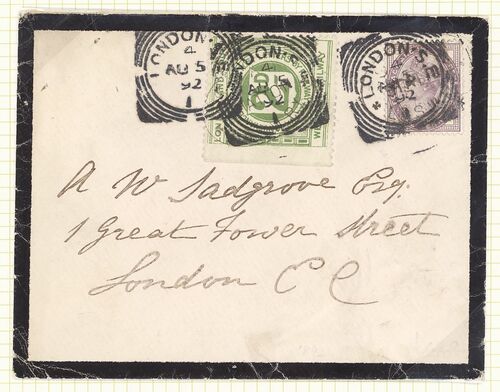 LONDON
4
AU 5
92
LONDON
4
AU 5
92
LONDON · S.E
92
A W Sadgrove Esq.
1 Great Tower Street
London E C